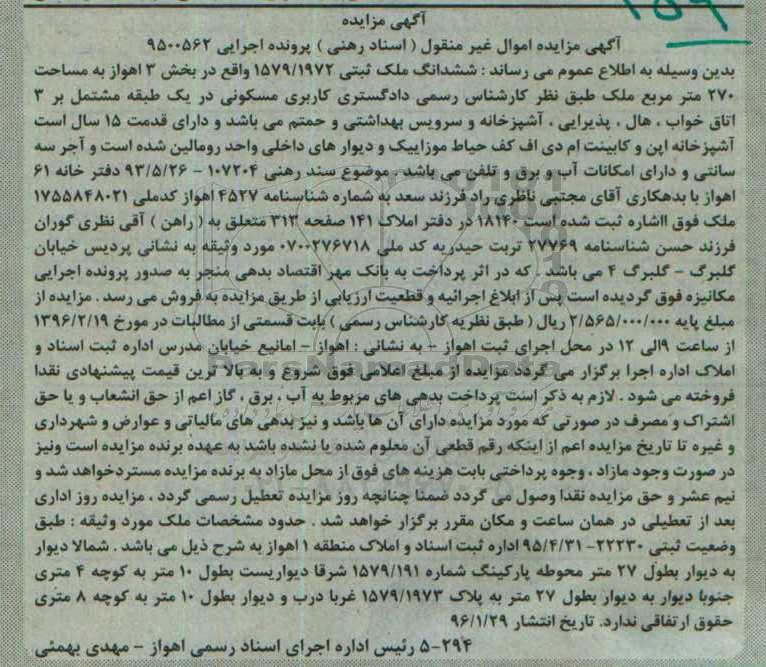 ۱۵۹
آگهی مزایده
آگهی مزایده اموال غیر منقول ( اسناد رهنی ) پرونده اجرایی ۹۵۰۰۵۶۲
بدین وسیله به اطلاع عموم می رساند : ششدانگ ملک ثبتی ۱۵۷۹/۱۹۷۲ واقع در بخش ۳ اهواز به مساحت
۲۷۰ متر مربع ملک طبق نظر کارشناس رسمی دادگستری کاربری مسکونی در یک طبقه مشتمل بر ۳
اتاق خواب ، هال ، پذیرایی ، آشپزخانه و سرویس بهداشتی و حمتم می باشد و دارای قدمت ۱۵ سال است
آشپزخانه اپن و کابینت ام دی اف کف حیاط موزاییک و دیوار های داخلی واحد رومالین شده است و آجر سه
سانتی و دارای امکانات آب و برق و تلفن می باشد . موضوع سند رهنی ۱۰۷۲۰۴ - ۹۳/۵/۲۶ دفتر خانه ۶۱
اهواز با بدهکاری آقای مجتبی ناظری راد فرزند سعد به شماره شناسنامه ۴۵۲۷ اهواز کدملی ۱۷۵۵۸۴۸۰۲۱
ملک فوق ااشاره ثبت شده است ۱۸۱۴۰ در دفتر املاک ۱۴۱ صفحه ۳۱۳ متعلق به ( راهن ) آقی نظری گوران
فرزند حسن شناسنامه ۲۷۷۶۹ تربت حیدریه کد ملی ۰۷۰۰۲۷۶۷۱۸ مورد وثیقه به نشانی پردیس خیابان
گلبرگ - گلبرگ ۴ می باشد . که در اثر پرداخت به بانک مهر اقتصاد بدهی منجر به صدور پرونده اجرایی
مکانیزه فوق گردیده است پس از ابلاغ اجرائیه و قطعیت ارزیابی از طریق مزایده به فروش می رسد . مزایده از
مبلغ پایه ۲/۵۶۵/۰۰۰/۰۰۰ ریال ( طبق نظریه کارشناس رسمی ) بابت قسمتی از مطالبات در مورخ ۱۳۹۶/۲/۱۹
از ساعت ۹الی ۱۲ در محل اجرای ثبت اهواز - به نشانی : اهواز - امانیع خیابان مدرس اداره ثبت اسناد و
املاک اداره اجرا برگزار می گردد مزایده از مبلغ اعلامی فوق شروع و به بالا ترین قیمت پیشنهادی نقدا
فروخته می شود . لازم به ذکر است پرداخت بدهی های مربوط به آب ، برق ، گاز اعم از حق انشعاب و یا حق
اشتراک و مصرف در صورتی که مورد مزایده دارای آن ها باشد و نیز بدهی های مالیاتی و عوارض و شهرداری
و غیره تا تاریخ مزایده اعم از اینکه رقم قطعی آن معلوم شده یا نشده باشد به عهده برنده مزایده است ونیز
در صورت وجود مازاد ، وجوه پرداختی بابت هزینه های فوق از محل مازاد به برنده مزایده مسترد خواهد شد و
نیم عشر و حق مزایده نقدا وصول می گردد ضمنا چنانچه روز مزایده تعطیل رسمی گردد ، مزایده روز اداری
بعد از تعطیلی در همان ساعت و مکان مقرر برگزار خواهد شد . حدود مشخصات ملک مورد وثیقه : طبق
وضعیت ثبتی ۲۲۲۳۰- ۹۵/۴/۳۱ اداره ثبت اسناد و املاک منطقه ۱ اهواز به شرح ذیل می باشد . شمالا دیوار
به دیوار بطول ۲۷ متر محوطه پارکینگ شماره ۱۵۷۹/۱۹۱ شرقا دیواریست بطول ۱۰ متر به کوچه ۴ متری
جنوبا دیوار به دیوار بطول ۲۷ متر به پلاک ۱۵۷۹/۱۹۷۳ غربا درب و دیوار بطول ۱۰ متر به کوچه ۸ متری
حقوق ارتفاقی ندارد. تاریخ انتشار ۹۶/۱/۲۹
۵-۲۹۴ رئیس اداره اجرای اسناد رسمی اهواز - مهدی بهمئی